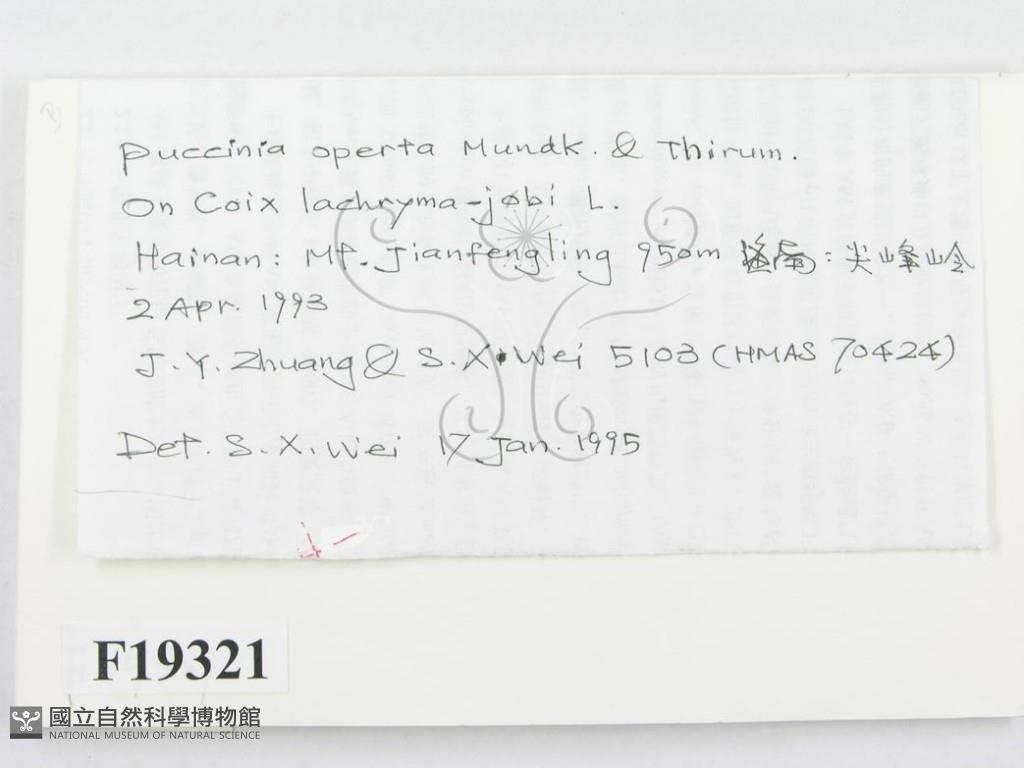 Puccinia operta Mundk. & Thirum.
On Coix lachryma-jobi L.
Hainan: Mt. Jianfengling 950m 海南: 尖峰岭
2 Apr. 1993
J. Y. Zhuang & S. X. Wei 5103 (HMAS 70424)
Det. S. X. Wei 17 Jan. 1995
F19321
國立自然科學博物館
NATIONAL MUSEUM OF NATURAL SCIENCE